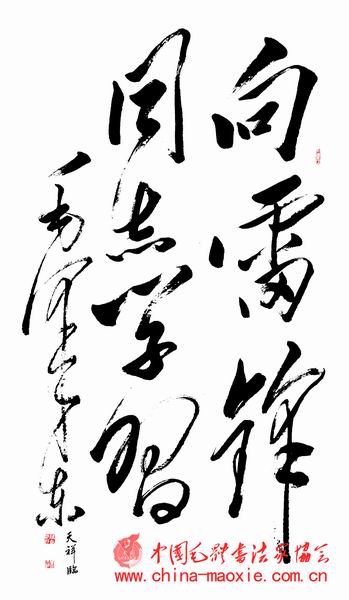 向雷锋
同志学习
毛泽东
天祥临
中国毛体书法家协会
www.china-maoxie.com.cn